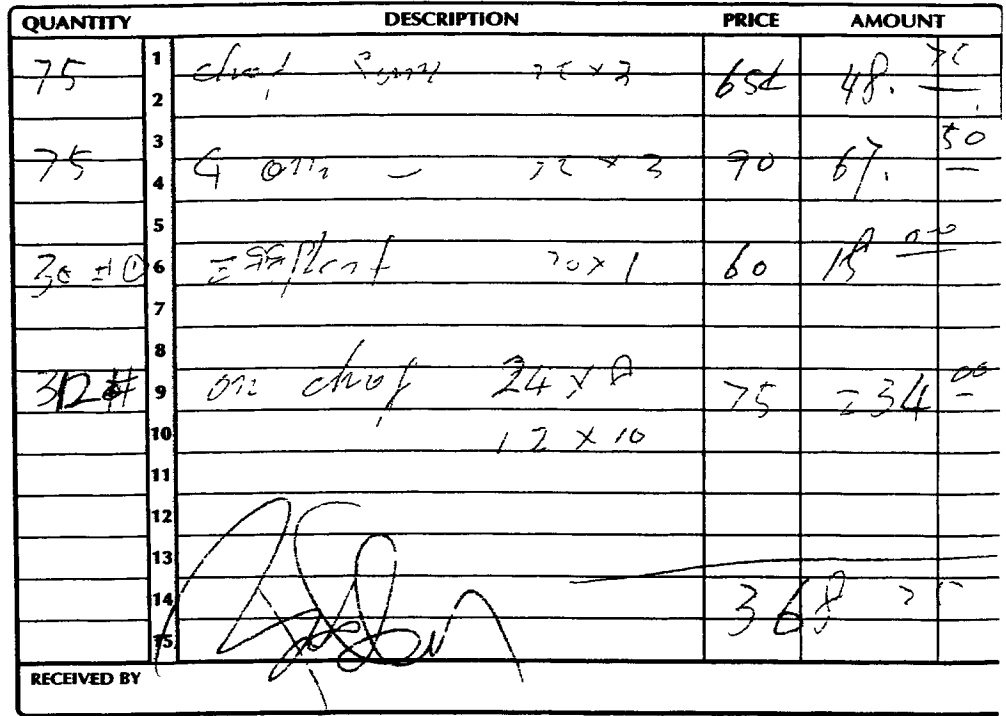 QUANTITY DESCRIPTION PRICE AMOUNT
1
75 chop 25 x 3 65¢ 48. 75
2
3
75 G on 25 x 3 90 67. 50
4
5
30 eggplant 30 x 1 60 18 00
6
7
8
312# on chop 24 x 8 75 = 234 00
9
10 12 x 10
11
12
13
14 368 25
15
RECEIVED BY